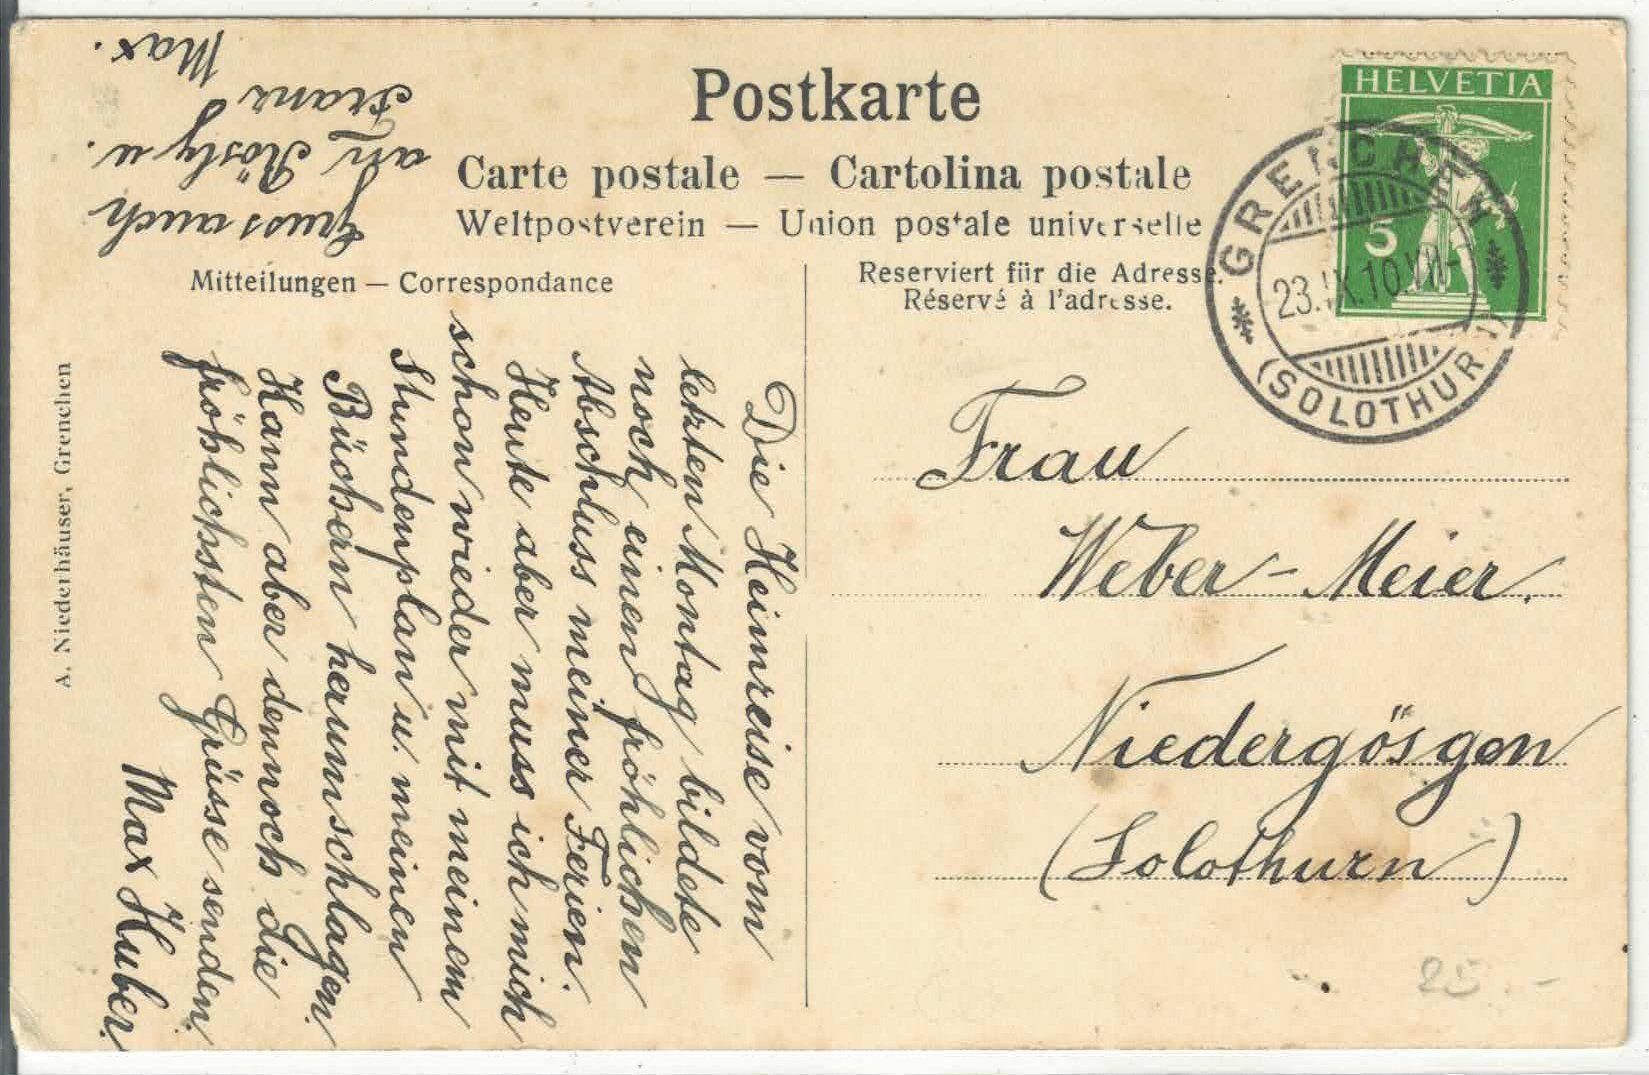 Postkarte
Carte postale — Cartolina postale
Weltpostverein — Union postale universelle
Mitteilungen — Correspondance
Reserviert für die Adresse.
Réservé à l'adresse.
HELVETIA
5
GRENCHEN
23.IX.10.VII-
(SOLOTHURN)
Frau
Weber-Meier.
Niedergösgen
(Solothurn)
Die Heimreise vom
letzten Montag bildete
noch einen fröhlichen
Abschluss meiner Ferien.
Heute aber muss ich mich
schon wieder mit meinem
Stundenplan u. meinen
Büchern herumschlagen.
Kann aber dennoch die
fröhlichsten Grüsse senden.
Max Huber.
Gruss auch
an Rösly u.
Franz
Max.
A. Niederhäuser, Grenchen
25.-